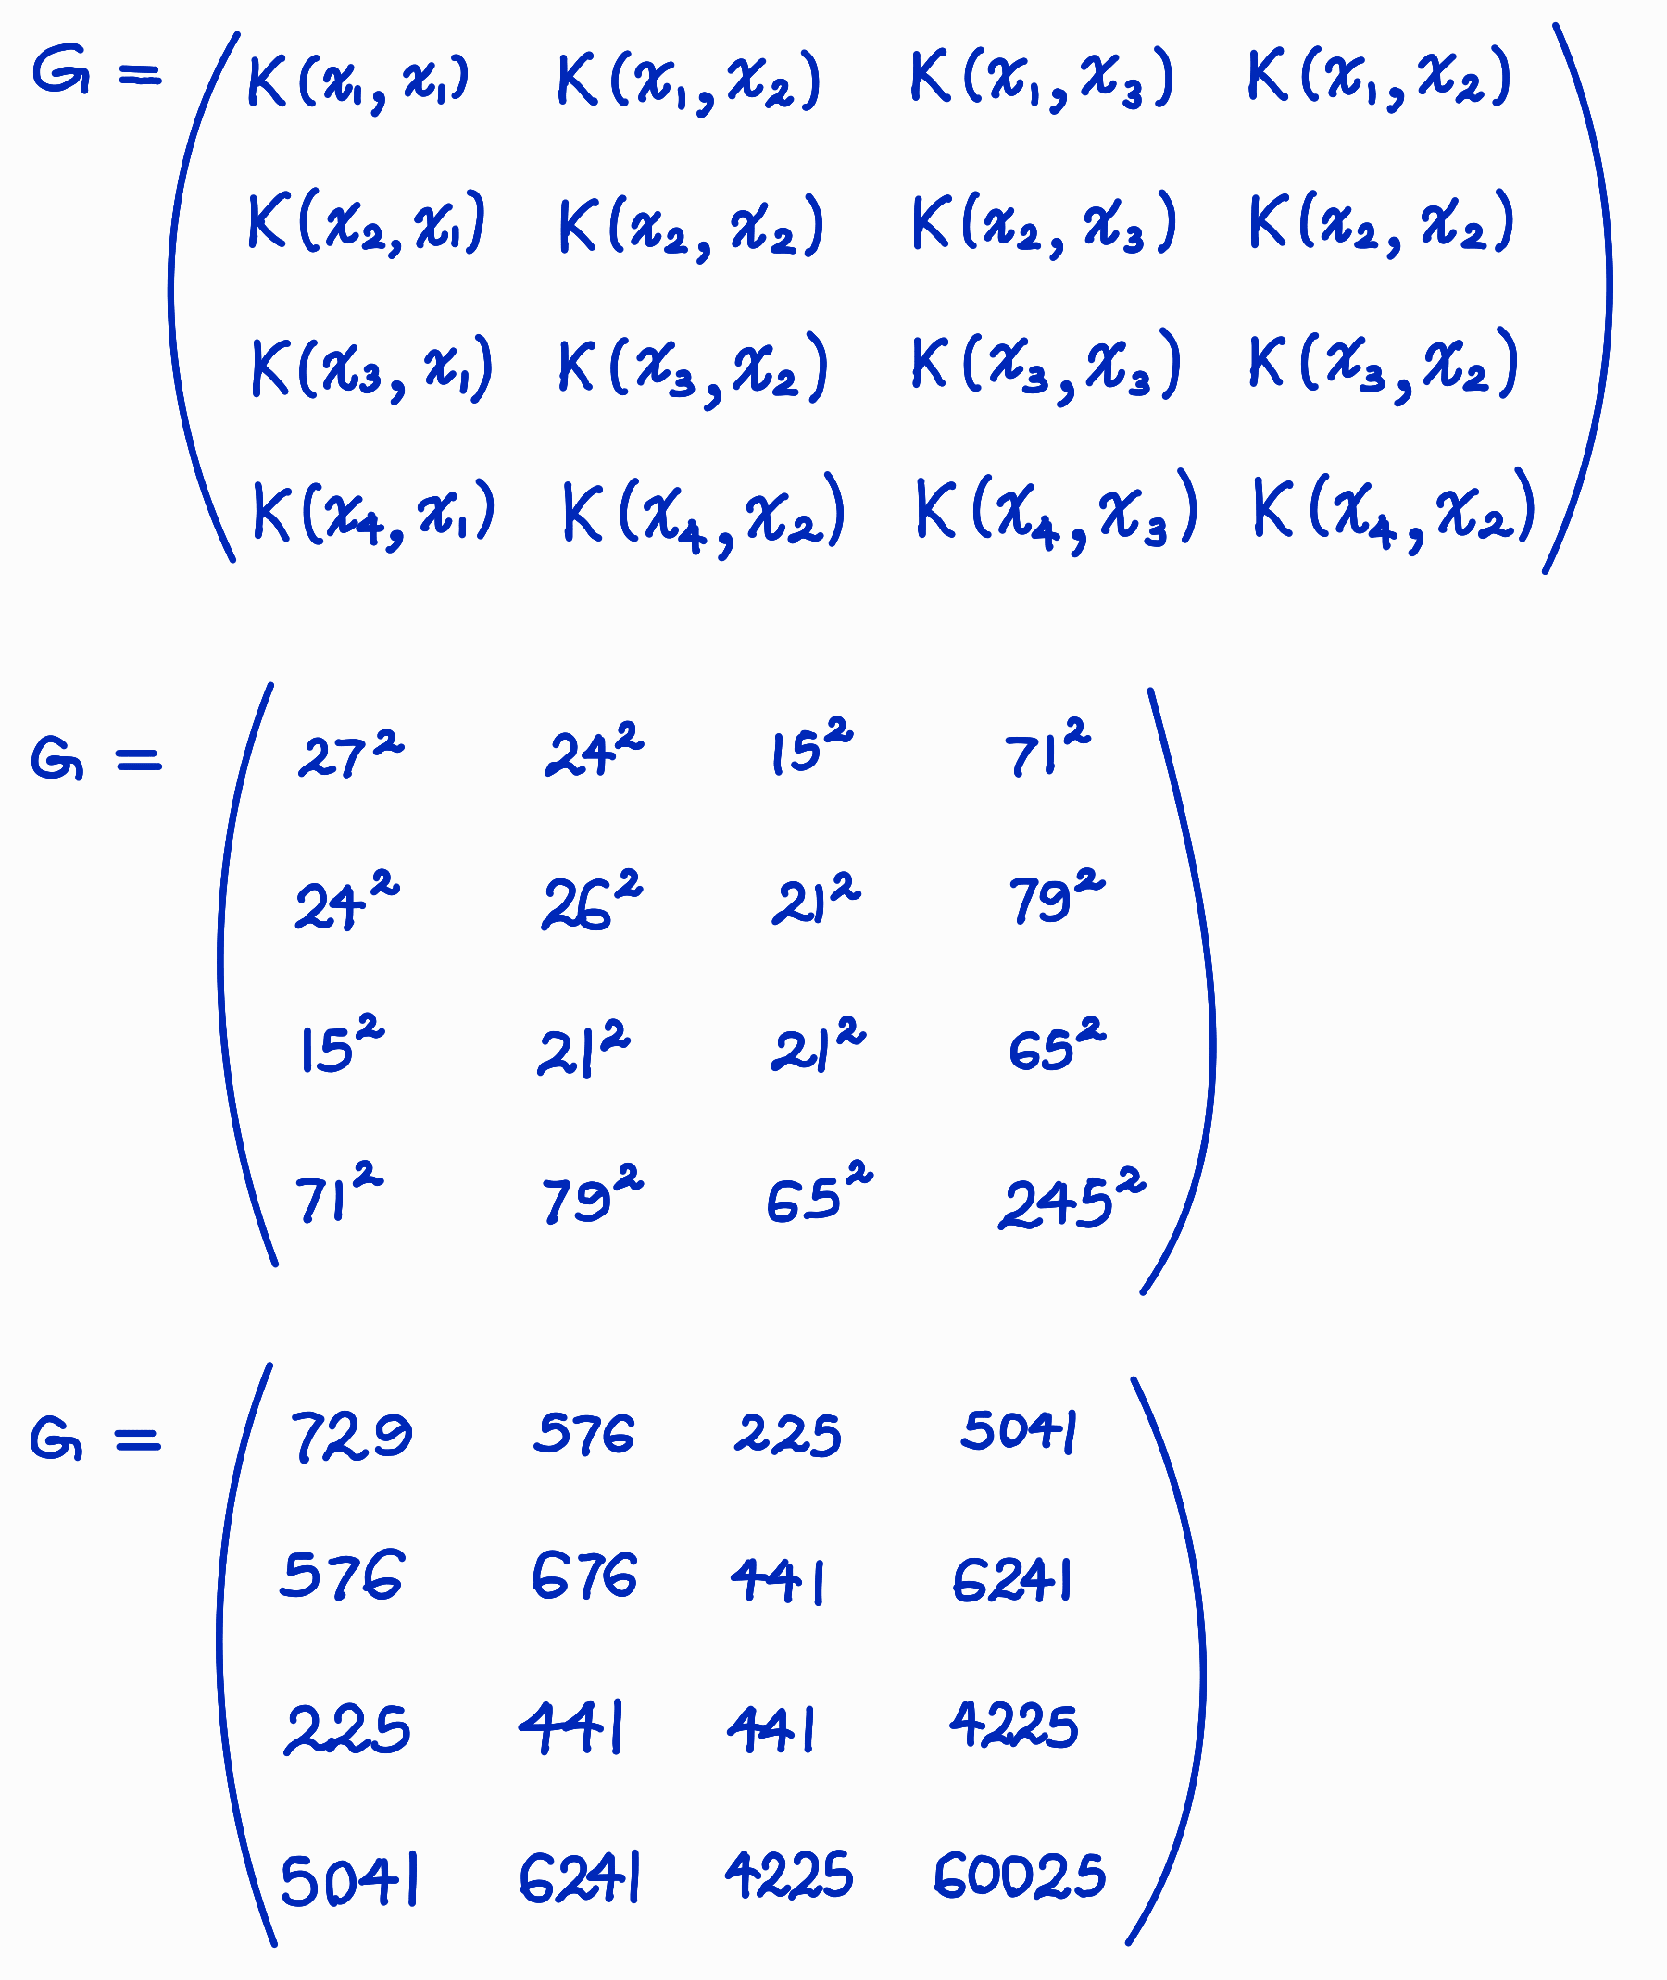 G = ( K(x₁, x₁) K(x₁, x₂) K(x₁, x₃) K(x₁, x₂) )
K(x₂, x₁) K(x₂, x₂) K(x₂, x₃) K(x₂, x₂)
K(x₃, x₁) K(x₃, x₂) K(x₃, x₃) K(x₃, x₂)
K(x₄, x₁) K(x₄, x₂) K(x₄, x₃) K(x₄, x₂)
G = ( 27² 24² 15² 71² )
24² 26² 21² 79²
15² 21² 21² 65²
71² 79² 65² 245²
G = ( 729 576 225 5041 )
576 676 441 6241
225 441 441 4225
5041 6241 4225 60025